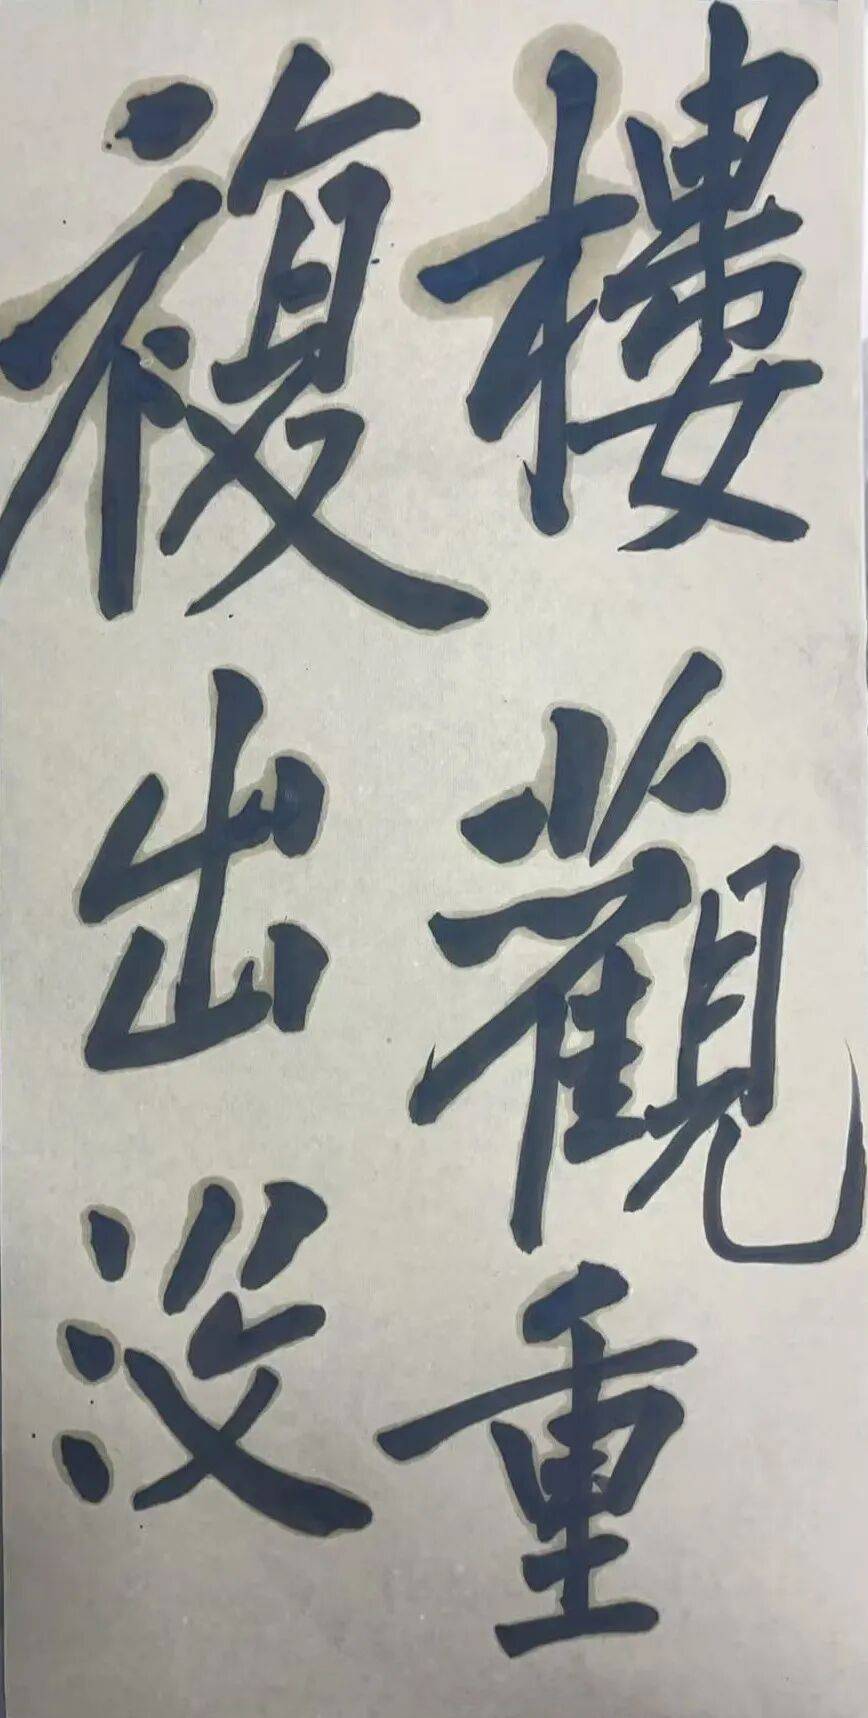 樓觀重
複出没